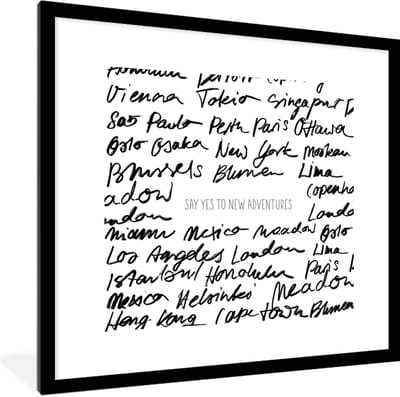 Honolulu Detroit Copenh
Vienna Tokio Singapur D
Sao Paulo Perth Paris Ottawa
Oslo Osaka New York Moskau
Brussels Blumen Lima
adow (openha
SAY YES TO NEW ADVENTURES
ndon Londo
Miami Mexico Meadow Oslo
Los Angeles London Lima
Istanbul Honolulu Paris
Mexico Helsinki Meadow
Hong Kong Cape town Blumen